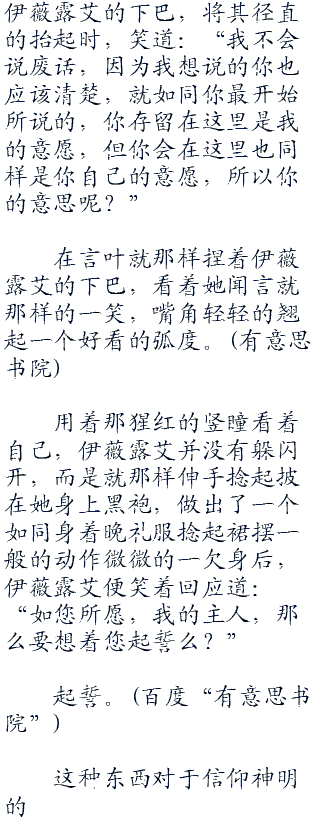 伊薇露艾的下巴，将其径直
的抬起时，笑道：“我不会
说废话，因为我想说的你也
应该清楚，就如同你最开始
所说的，你存留在这里是我
的意愿，但你会在这里也同
样是你自己的意愿，所以你
的意思呢？”
在言叶就那样捏着伊薇
露艾的下巴，看着她闻言就
那样的一笑，嘴角轻轻的翘
起一个好看的弧度。(有意思
书院)
用着那猩红的竖瞳看着
自己，伊薇露艾并没有躲闪
开，而是就那样伸手捻起披
在她身上黑袍，做出了一个
如同身着晚礼服捻起裙摆一
般的动作微微的一欠身后，
伊薇露艾便笑着回应道：
“如您所愿，我的主人，那
么要想着您起誓么？”
起誓。(百度“有意思书
院”)
这种东西对于信仰神明
的